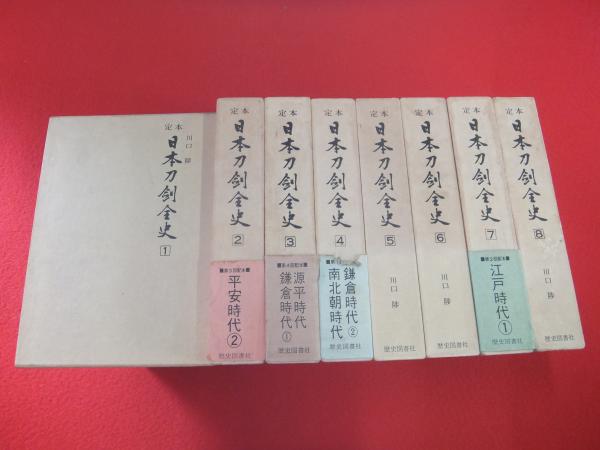 定本
日本刀剣全史
川口 陟
1
定本
日本刀剣全史
2
■第3回配本■
平安時代②
歴史図書社
定本
日本刀剣全史
3
■第4回配本■
源平時代
鎌倉時代①
歴史図書社
定本
日本刀剣全史
4
鎌倉時代②
南北朝時代
歴史図書社
定本
日本刀剣全史
5
川口 陟
歴史図書社
定本
日本刀剣全史
6
川口 陟
歴史図書社
定本
日本刀剣全史
7
■第2回配本■
江戸時代①
歴史図書社
定本
日本刀剣全史
8
川口 陟
歴史図書社